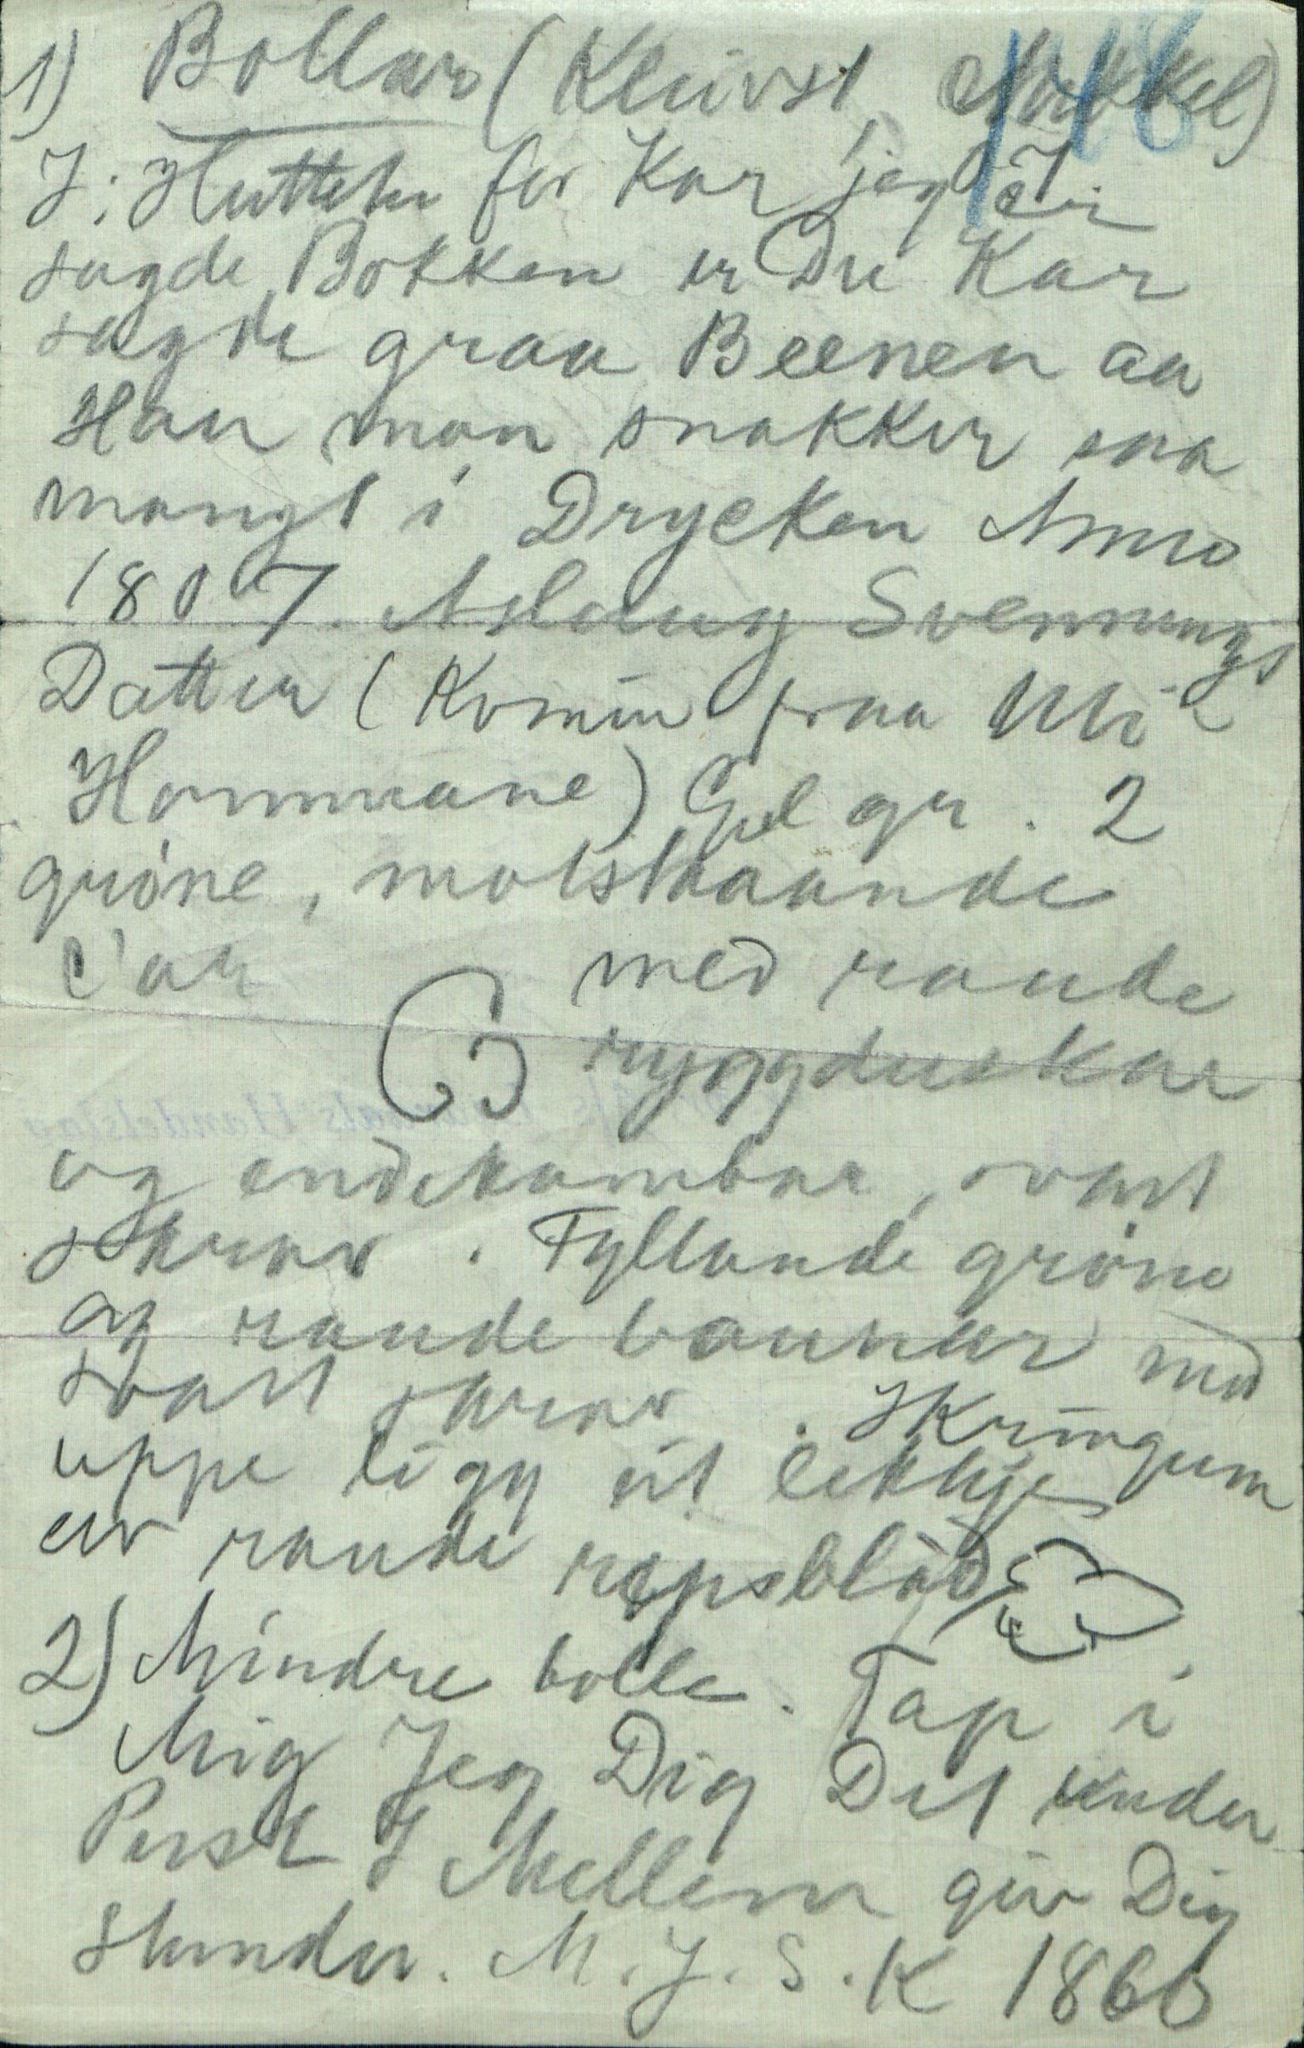 1) Bollar (Kleivst, Mikkel)
148
I; Hutteher for Kar jeg er
sagde Bokken er Du Kar
sagde graa Beenen aa
Han man snakker saa
mangt i Drycken Anno
1807. Aslaug Svennungs
Datter (Komin fraa Uti
Hommane) Gul gr. 2
gröne, motstaaande
C'ar med raude
ryggduskar
og endekambar, svart
skrav. Fyllande gröne
og raude baunar med
svart skrav. Ikringum
uppe ligg eit lekkje
av raude repsblad
2) Mindre bolle. Tap i
Mig Jeg Dig Det under
Perst I Mellem giv Dig
Stunder. M. J. S. K 1866